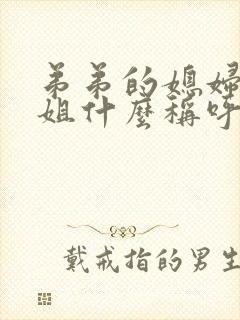 弟弟的媳婦
姐什麼稱呼
戴戒指的男生